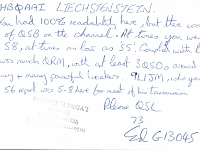 HB0AAI LIECHTENSTEIN.
You had 100% readability here, but there was
of QSB on the channel. At times you were
S8, at times as low as S5. Coupled with t
was much QRM, with at least 3 QSOs around
many powerful breakers.
S6 report was 5-8 for most of his transmission
Please QSL
73
Ed GI3045